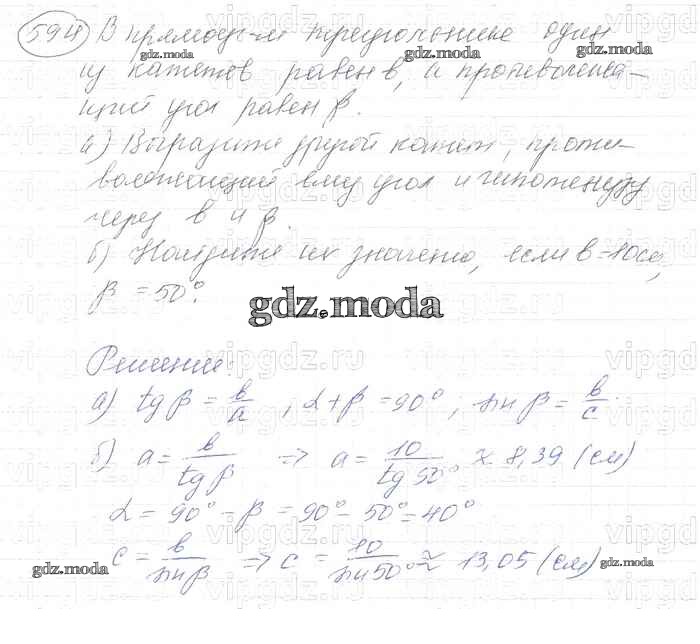 594 В прямоуг-м треугольнике один
из катетов равен b, а противолежа-
щий угол равен β.
а) Выразите другой катет, проти-
волежащий ему угол и гипотенузу
через b и β.
б) Найдите их значения, если b = 10см,
β = 50°.
gdz.moda
Решение:
а) tg β = b/a , α + β = 90° ; sin β = b/c .
б) a = b/tg β ⇒ a = 10/tg 50° ≈ 8,39 (см)
α = 90° - β = 90° - 50° = 40°
c = b/sin β ⇒ c = 10/sin 50° ≈ 13,05 (см)